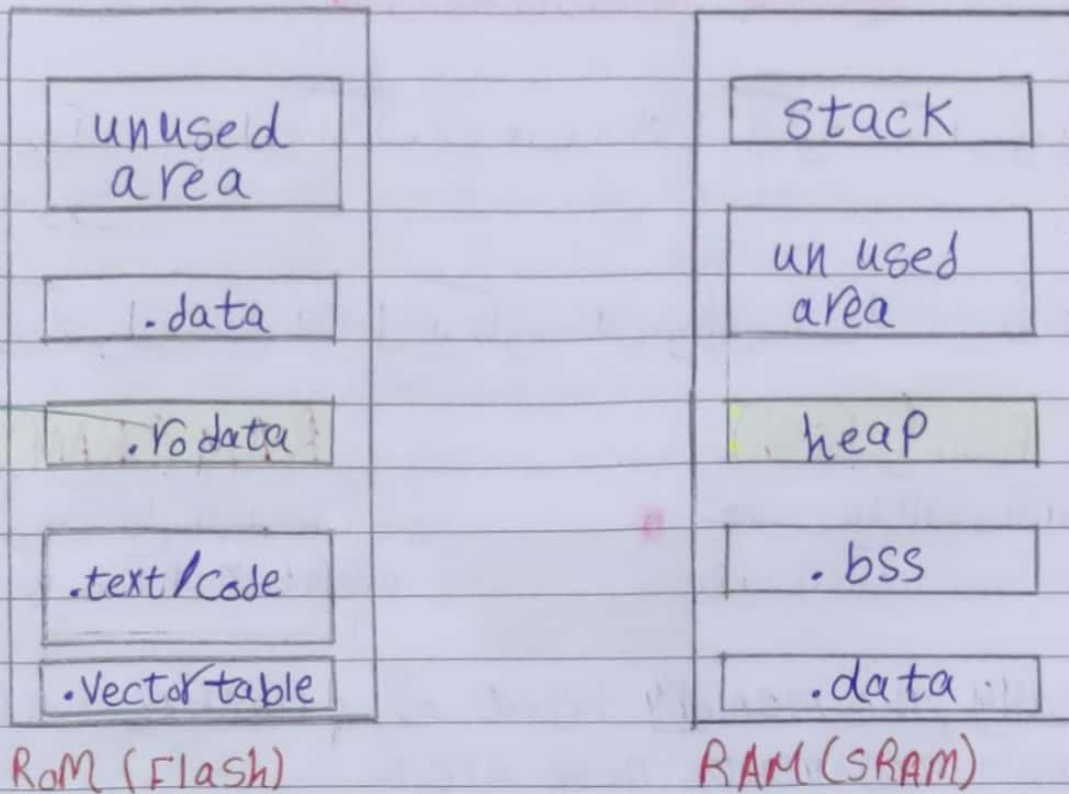 unused
area
.data
.rodata
.text/Code
.Vector table
RoM (Flash)
stack
un used
area
heap
.bss
.data
RAM (SRAM)